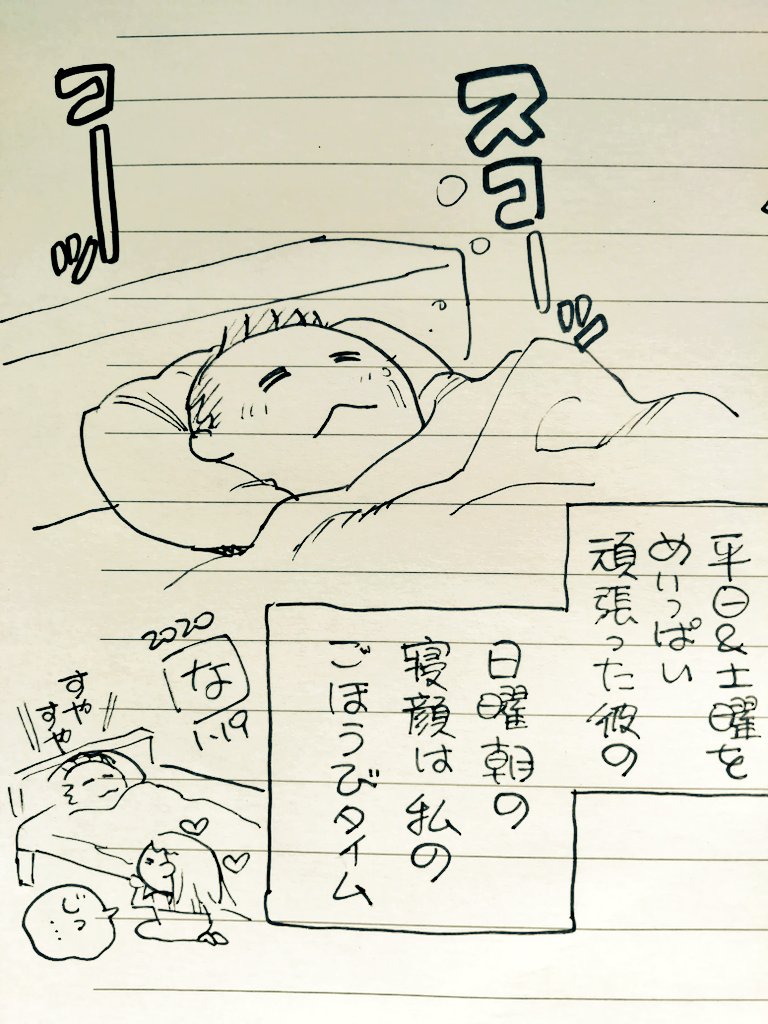 スコーッ
コーッ
平日&土曜を
めいっぱい
頑張った彼の
日曜朝の
寝顔は私の
ごほうびタイム
2020
な
1.19
すやすや
すや
じっ
…